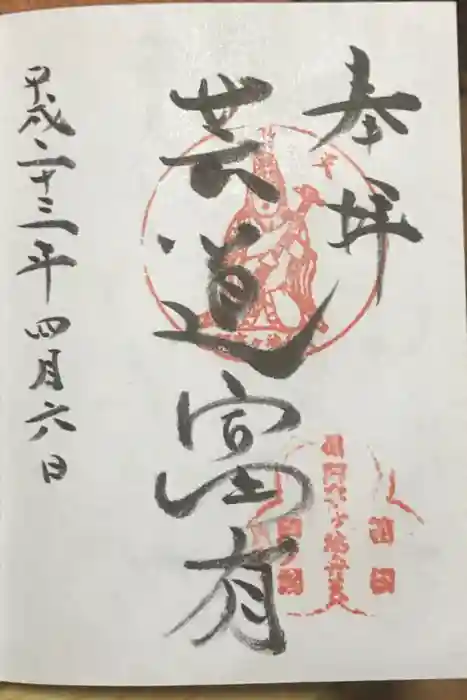 奉拝
芸道富有
平成二十三年四月六日